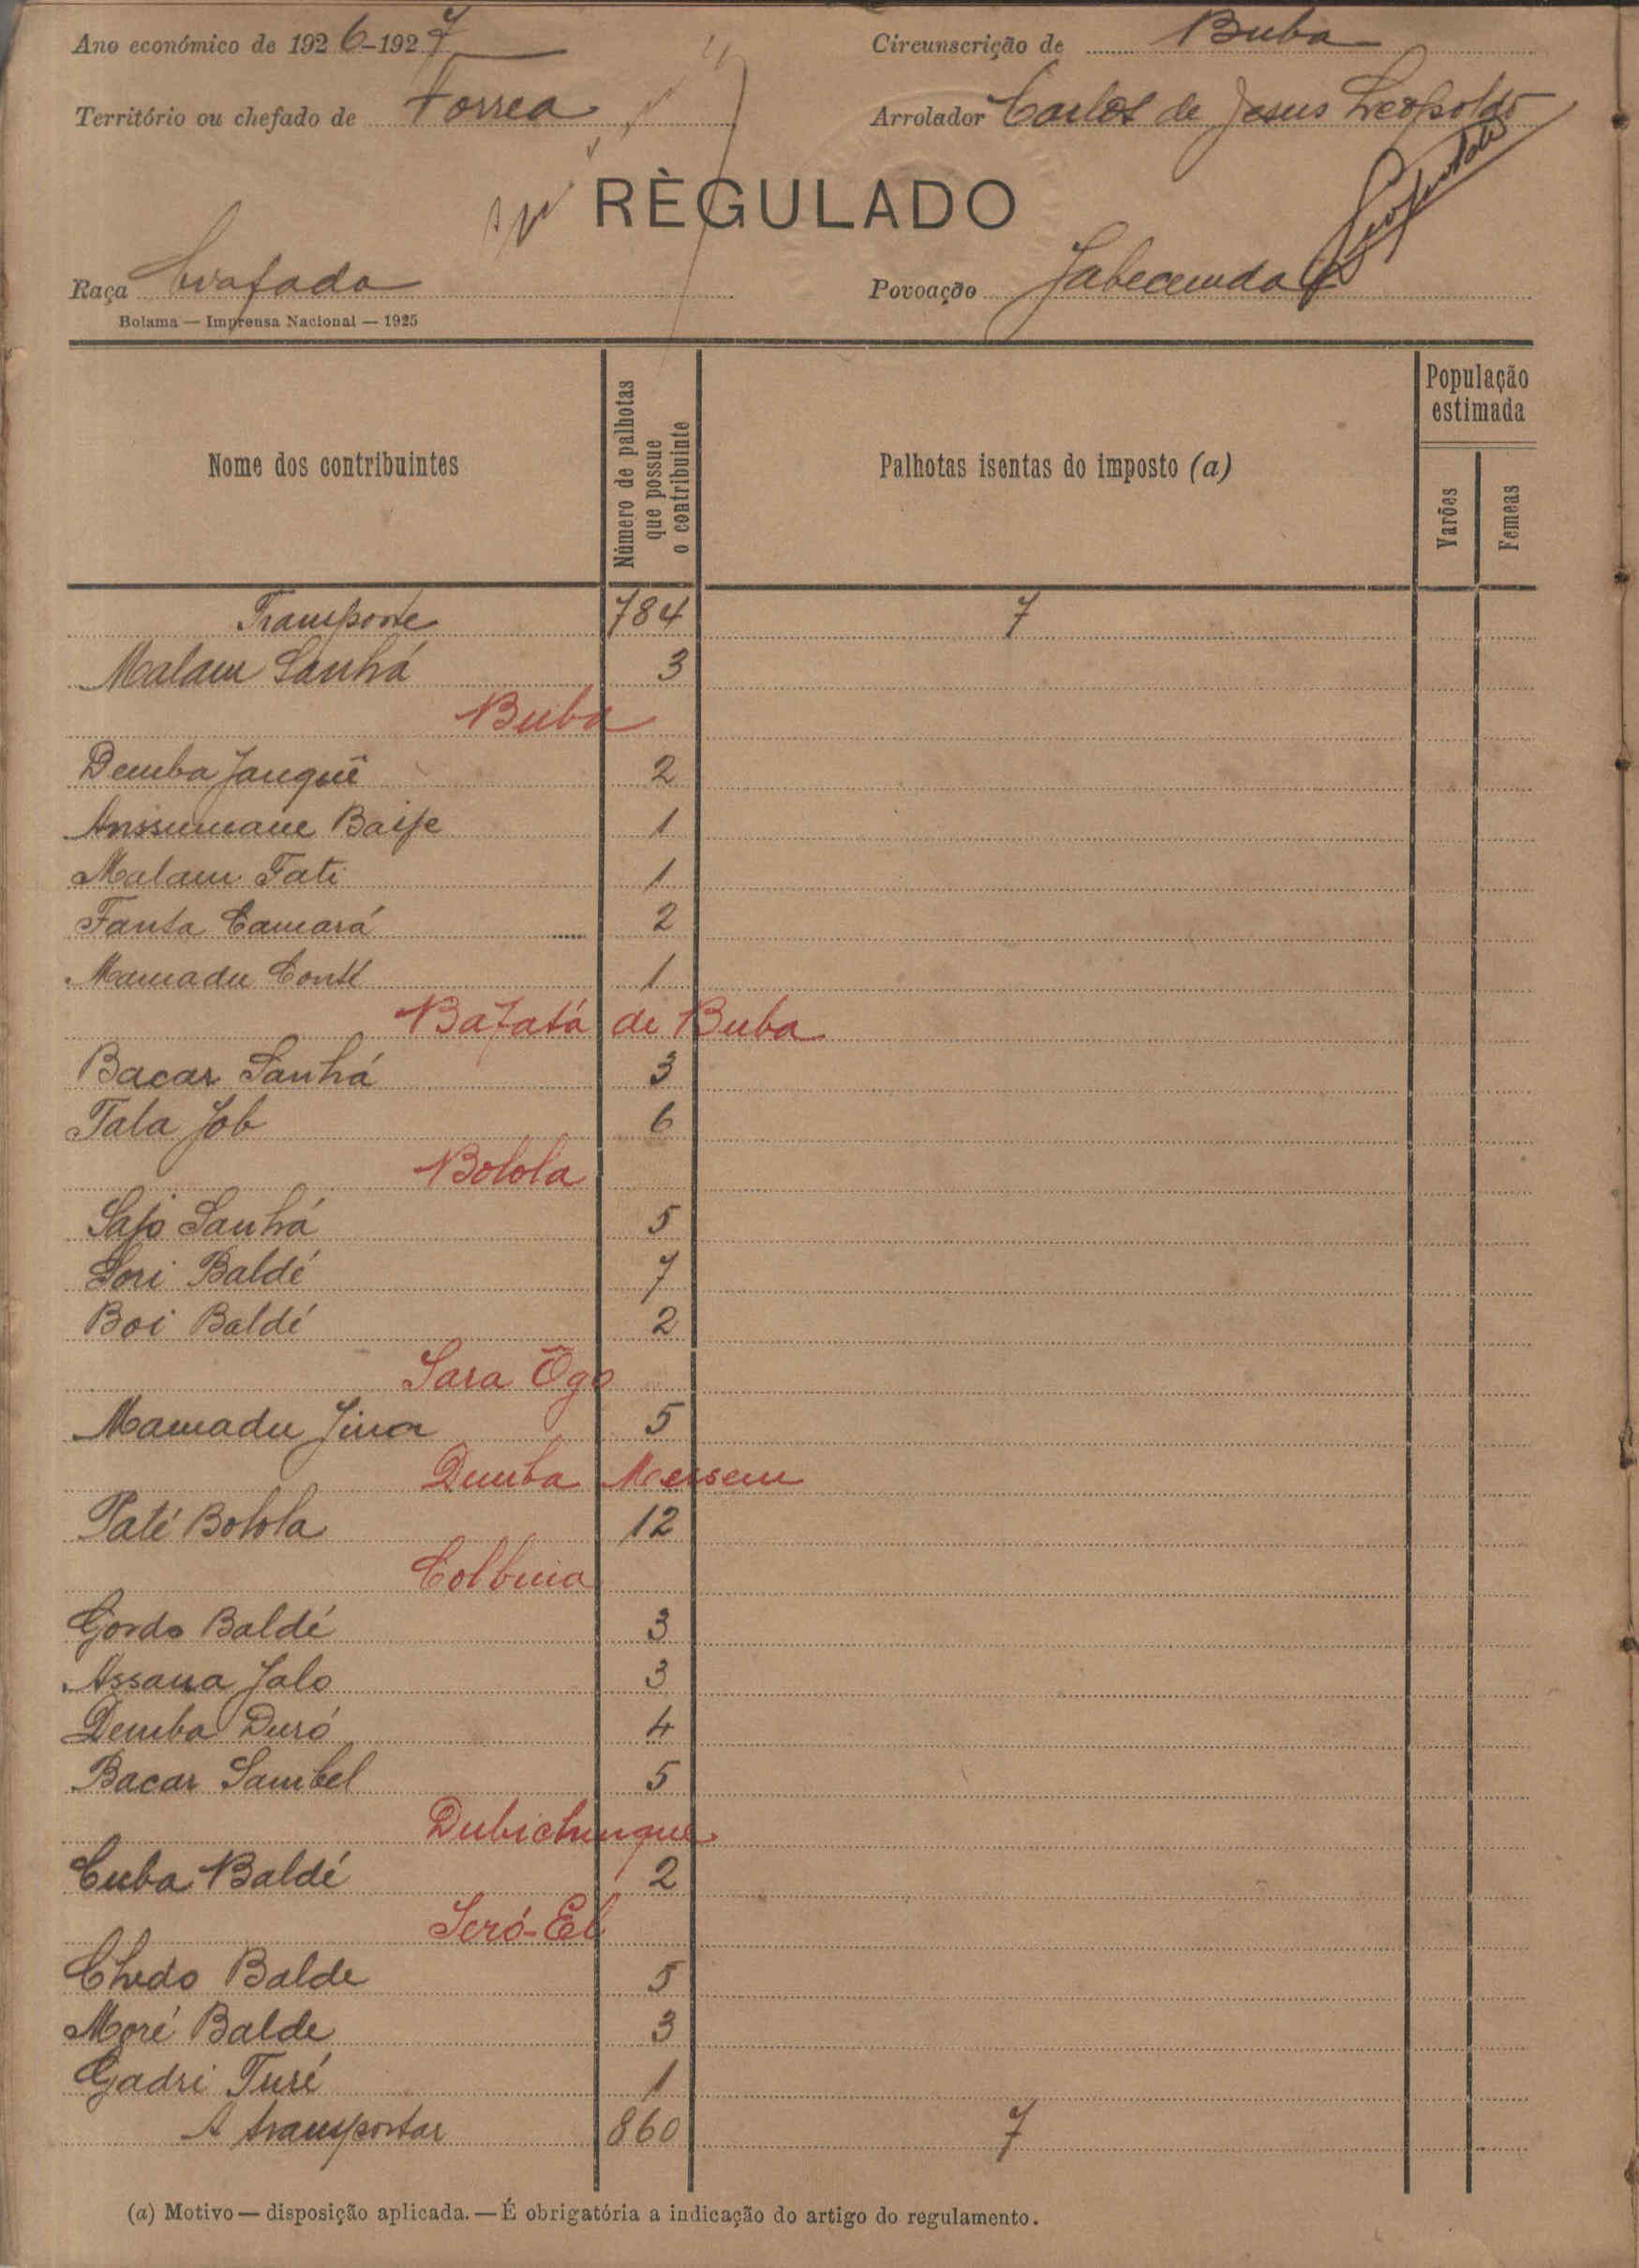 Ano económico de 1926-1927
Circunscrição de Buba
Território ou chefado de Forrea
Arrolador Carlos de Jesus Leopoldo
RÈGULADO
Raça Biafada
Povoação
Bolama — Imprensa Nacional — 1925
Nome dos contribuintes
Número de palhotas que possue o contribuinte
Palhotas isentas do imposto (a)
População estimada
Varões
Femeas
Transporte 784 7
Malam Sanhá 3
Buba
Demba Janquê 2
Anssumane Baife 1
Malam Fati 1
Fanta Camará 2
Mamadu Conté 1
Bafatá de Buba
Bacar Sanhá 3
Tala Job 6
Bolola
Sajo Sanhá 5
Sori Baldé 7
Boi Baldé 2
Sara Ôgo
Mamadu 5
Demba Messem
Paté Bolola 12
Colbuia
Gordo Baldé 3
Assana Jalo 3
Demba Duró 4
Bacar Sambel 5
Dubichinque
Cuba Baldé 2
Seró-El
Chedo Balde 5
Moré Balde 3
Gadri Turé 1
A transportar 860 7
(a) Motivo — disposição aplicada. — É obrigatória a indicação do artigo do regulamento.